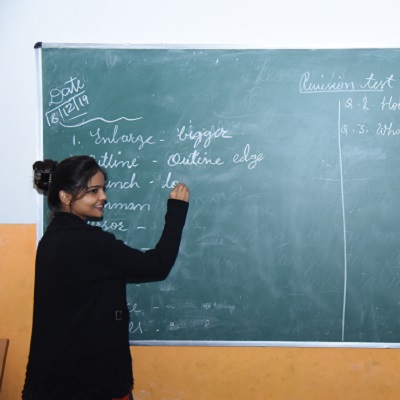 Date
16/12/19
1. Enlarge - bigger
outline - Outine edge
unch - lo
nman
sor -
Revision test
Q.2 Ho
Q.3. Wha